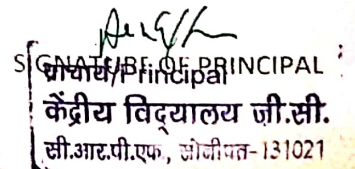 SIGNATURE OF PRINCIPAL
प्राचार्य/Principal
केंद्रीय विद्यालय जी.सी.
सी.आर.पी.एफ., सोनीपत-131021